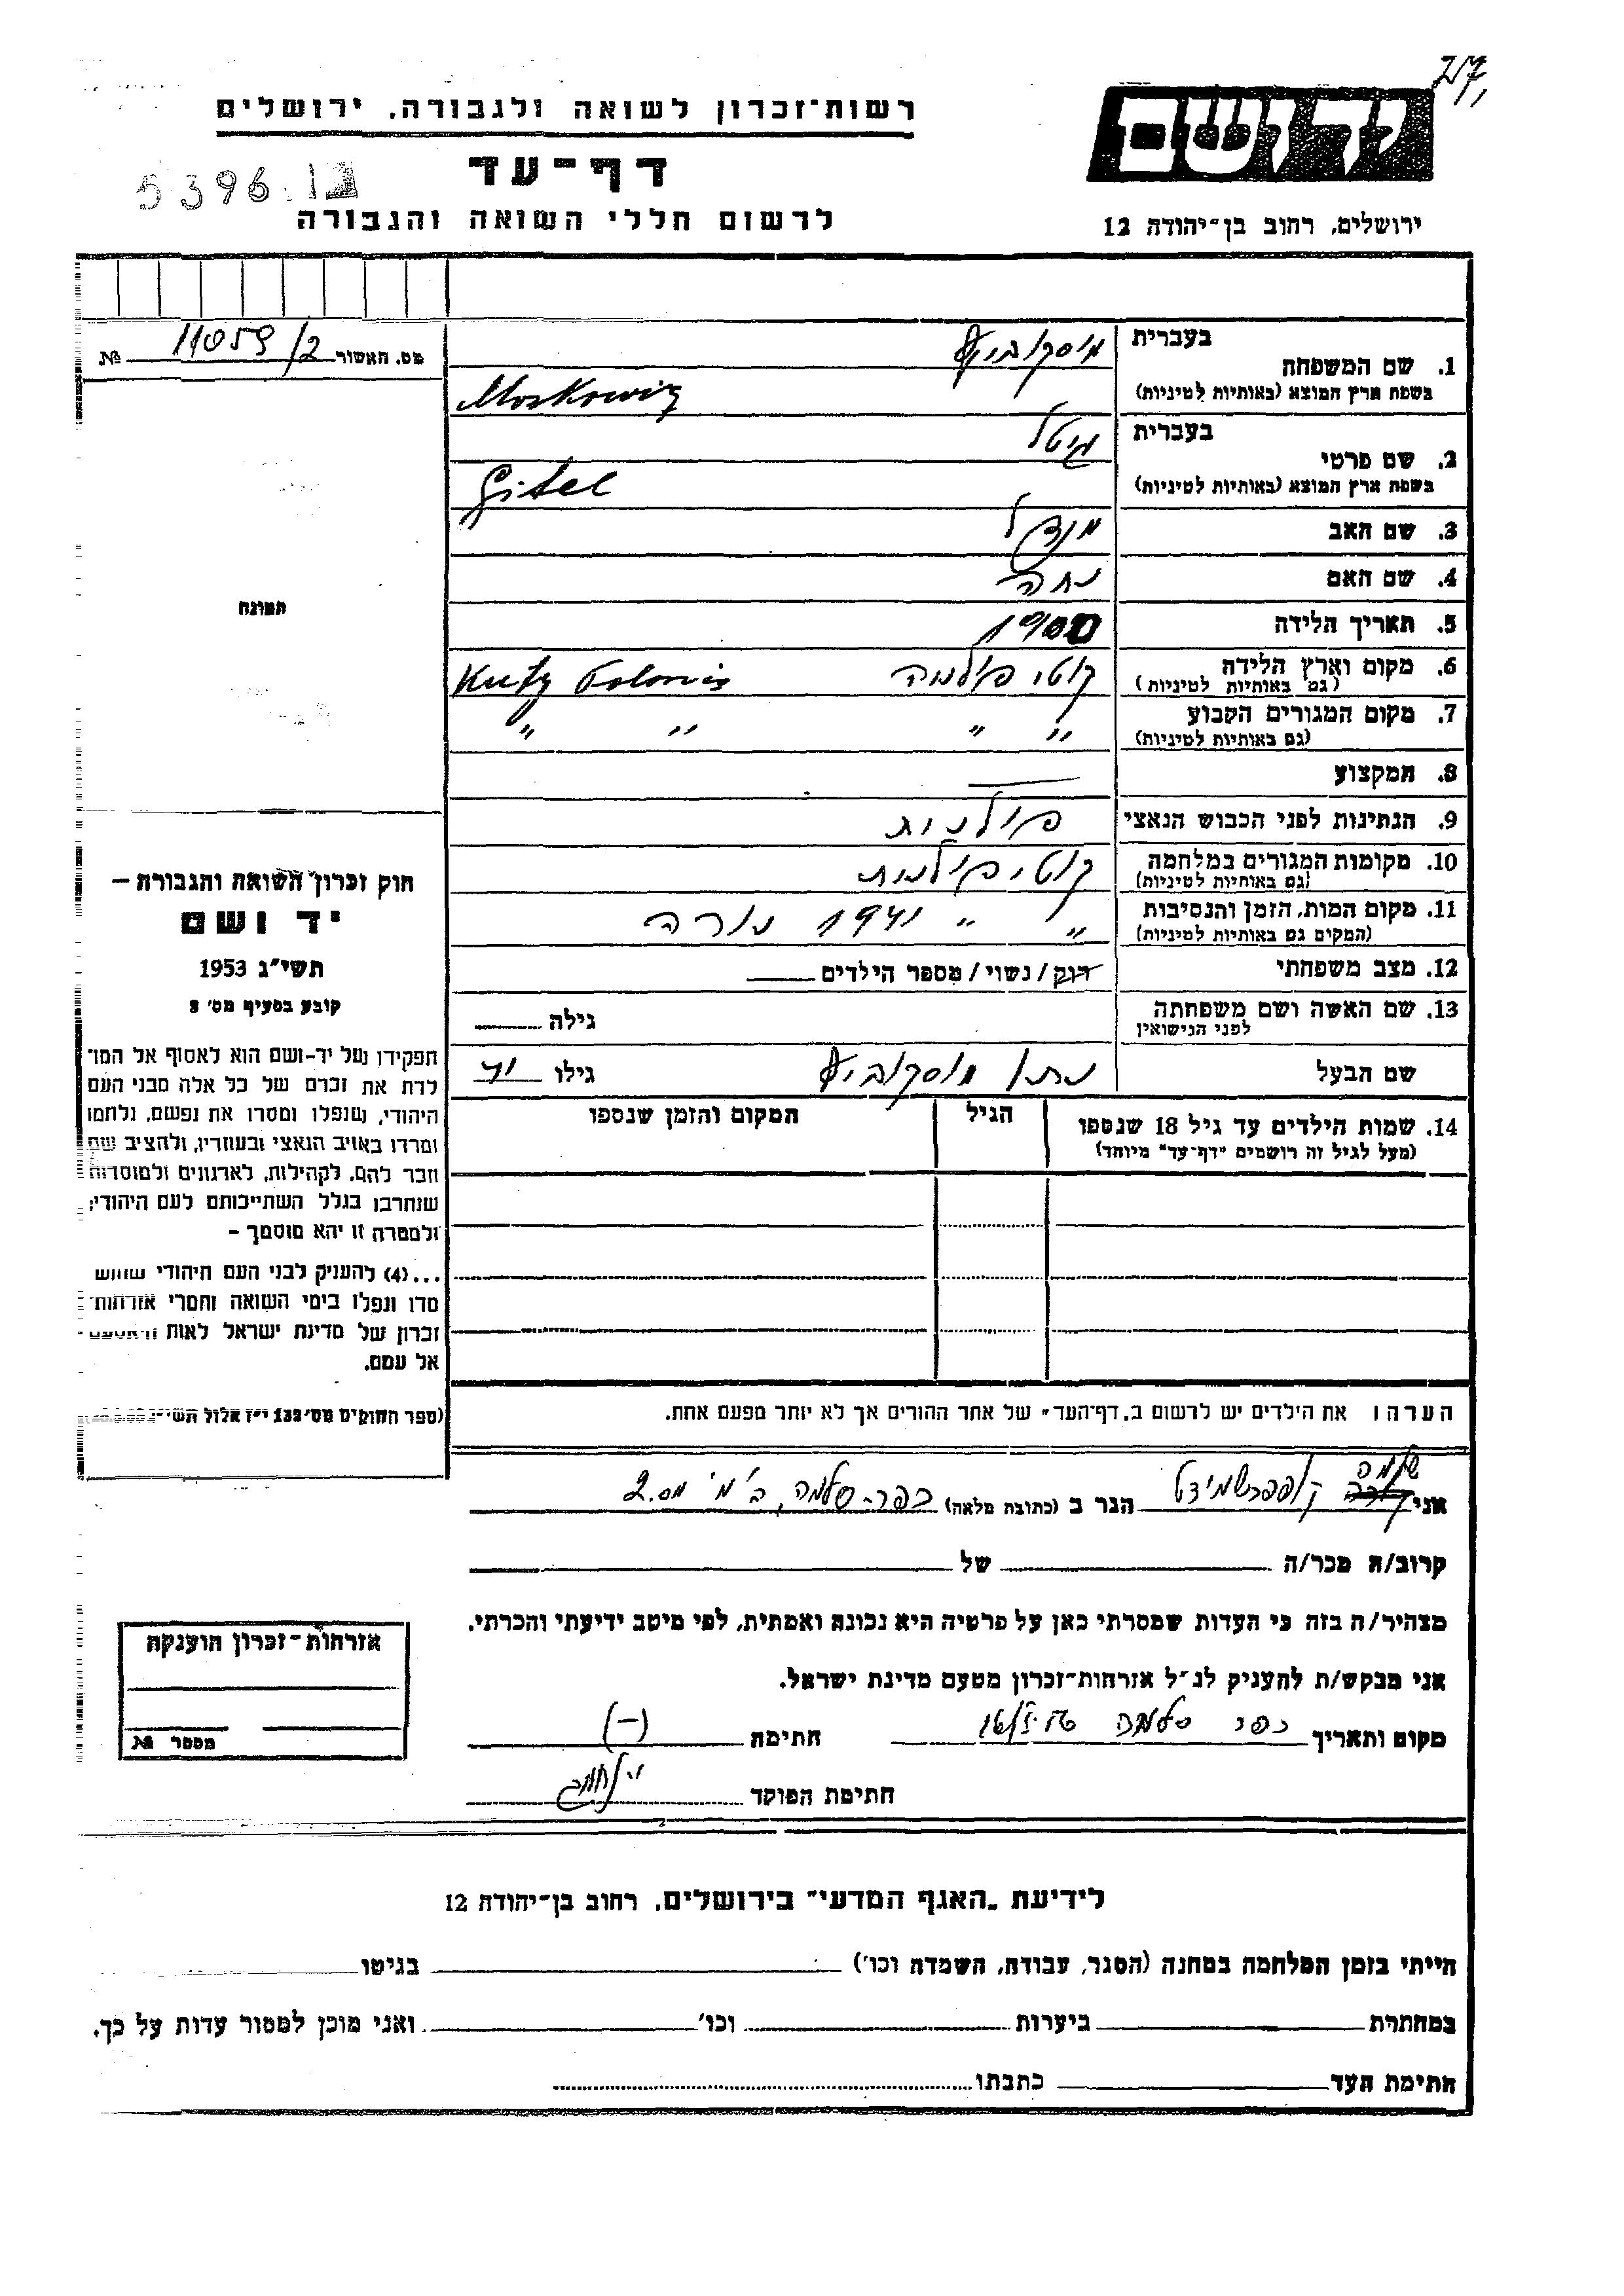 רשות־זכרון לשואה ולגבורה, ירושלים
דף־עד
לרשום חללי השואה והגבורה
5396.12
יד ושם
ירושלים, רחוב בן־יהודה 12
מס. האשור 11059/2 №
תמונה
בעברית מוסקוביץ
1. שם המשפחה
בשפת ארץ המוצא (באותיות לטיניות) Moskowiz
בעברית גיטל
2. שם פרטי
בשפת ארץ המוצא (באותיות לטיניות) Gitel
3. שם האב מנדל
4. שם האם נחה
5. תאריך הלידה 1900
6. מקום וארץ הלידה קוטי פולניה Kuty Polonia
(גם באותיות לטיניות)
7. מקום המגורים הקבוע " " " "
(גם באותיות לטיניות)
8. המקצוע —
9. הנתינות לפני הכבוש הנאצי פולנית
10. מקומות המגורים במלחמה קוטי פולנית
(גם באותיות לטיניות)
11. מקום המות, הזמן והנסיבות " " 1941 נורה
(המקום גם באותיות לטיניות)
12. מצב משפחתי רוק/נשוי/מספר הילדים
13. שם האשה ושם משפחתה גילה
לפני הנישואין
שם הבעל נתן מוסקוביץ גילו 41
14. שמות הילדים עד גיל 18 שנספו הגיל המקום והזמן שנספו
(מעל לגיל זה רושמים "דף־עד" מיוחד)
חוק זכרון השואה והגבורה –
יד ושם
תשי"ג 1953
קובע בסעיף מס' 2
תפקידו של יד-ושם הוא לאסוף אל המו־
לדת את זכרם של כל אלה מבני העם
היהודי, שנפלו ומסרו את נפשם, נלחמו
ומרדו באויב הנאצי ובעוזריו, ולהציב שם
וזכר להם, לקהילות, לארגונים ולמוסדות
שנחרבו בגלל השתייכותם לעם היהודי;
ולמטרה זו יהא מוסמך –
...(4) להעניק לבני העם היהודי שהוש
מדו ונפלו בימי השואה והמרי אזרחות־
זכרון של מדינת ישראל לאות היאספם
אל עמם.
(ספר החוקים מס' 132 י"ז אלול תשי"ג
הערה: את הילדים יש לרשום ב"דף־העד" של אחד ההורים אך לא יותר מפעם אחת.
אני שלמה קופפרשמידט הגר ב (כתובת מלאה) כפר-סלמה, ב'מ' מס. 2
קרוב/ה מכר/ה של
מצהיר/ה בזה כי העדות שמסרתי כאן על פרטיה היא נכונה ואמתית, לפי מיטב ידיעתי והכרתי.
אני מבקש/ת להעניק לנ"ל אזרחות־זכרון מטעם מדינת ישראל.
מקום ותאריך כפר סלמה חתימה (–)
חתימת הפוקד
אזרחות־זכרון הוענקה
מספר №
לידיעת "האגף המדעי" בירושלים, רחוב בן־יהודה 12
הייתי בזמן המלחמה במחנה (הסגר, עבודה, השמדה וכו') בגיטו
במחתרת ביערות וכו' ואני מוכן למסור עדות על כך.
חתימת העד כתבתו